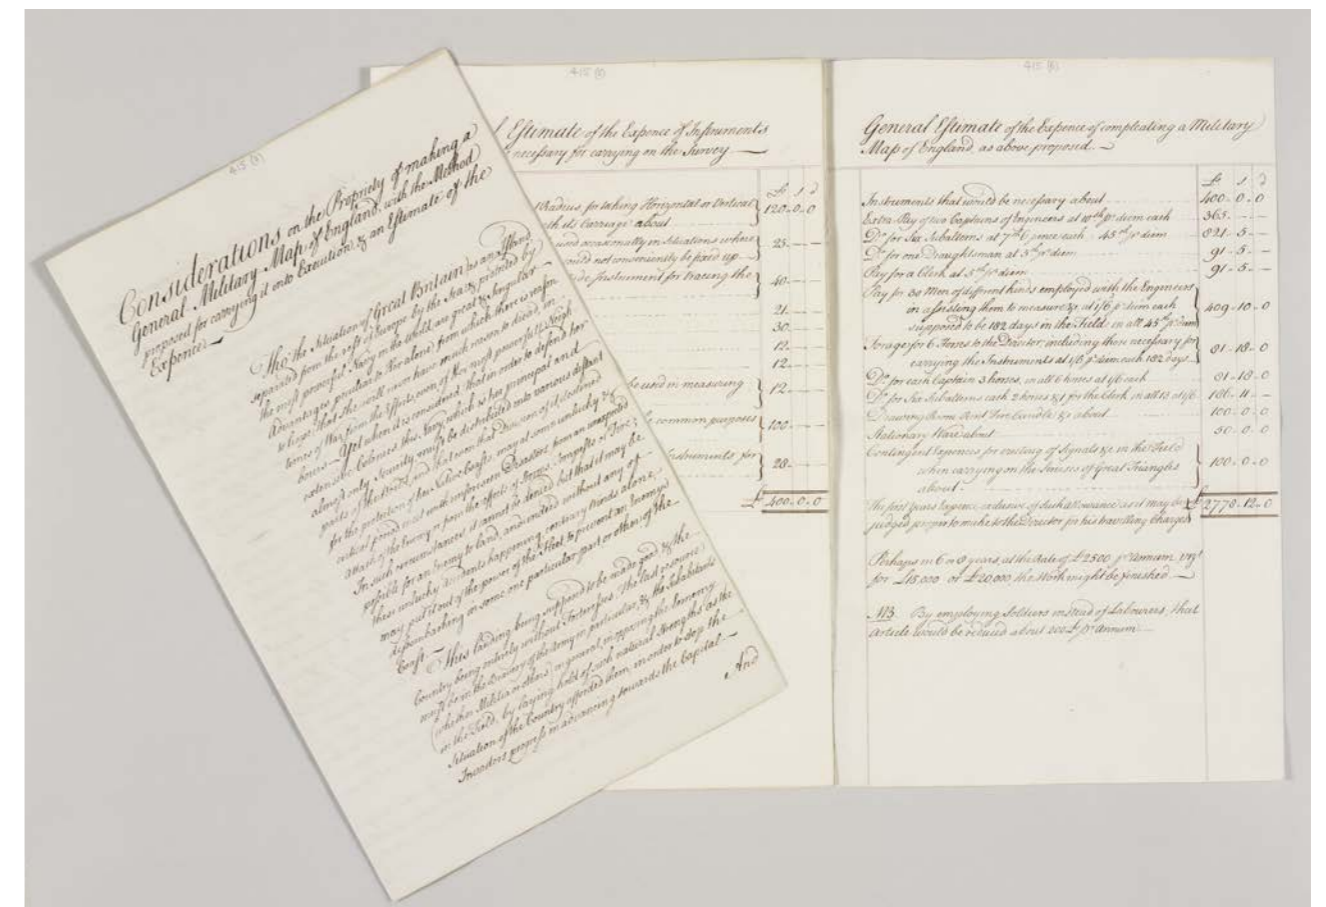 415 (1)
Considerations on the Propriety of making a
General Military Map of England, with the Method
proposed for carrying it into Execution, & an Estimate of the
Expence
Tho' the Situation of Great Britain as an Island
seperated from the rest of Europe by the Sea, & protected by
the most powerful Navy in the World, are great & singular
Advantages peculiar to Her alone, from which there is reason
to hope, that she will never have much reason to dread, in
times of War, from the Efforts, even of the most powerful Neigh-
bours — Yet when it is considered, that in order to defend her
extensive Colonies, this Navy, which is her principal and
almost only Security, must be distributed into various distant
parts of the World, and that even that Division of it destined
for the protection of her Native Coasts, may at some unlucky &
critical period meet with unforeseen Disasters, from an unexpected
attack of the Enemy, or from the effects of Storms, Tempests or Fire;
In such circumstances, it cannot be denied, but that it may be
possible for an Enemy to land, and indeed without any of
these unlucky Accidents happening, contrary Winds alone,
may put it out of the power of the Fleet to prevent an Enemy's
disembarking in some one particular part or other of the
Coast. — This landing being supposed to be made good, & the
Country being entirely without Fortresses, The last resource
must be in the Bravery of the Army in particular, & the Inhabitants
(whether Militia or others) in general, in opposing the Enemy
in the Field, by laying hold of such natural Strengths as the
Situation of the Country afforded them, in order to stop the
Invaders progress in advancing towards the Capital —
And
415 (8)
Estimate of the Expence of Instruments
necessary for carrying on the Survey —
£ s d
Radius, for taking Horizontal or Vertical
with its Carriage about 120-0-0
used occasionally in Situations where
could not conveniently be fixed up 25. — —
Instrument for tracing the
40. — —
21. — —
30. — —
12. — —
12. — —
be used in measuring
12. — —
common purposes
100 — —
Instruments for
28 — —
£ 400-0-0
415 (8)
General Estimate of the Expence of compleating a Military
Map of England, as above proposed. —
£ s d
Instruments that would be necessary about 400-0-0
Extra Pay of two Captains of Engineers at 10sh pr diem each 365. — —
Do for Six Subalterns at 7sh 6 pence each 45sh pr diem 821-5-—
Do for one Draughtsman at 5sh pr diem 91-5-—
Pay for a Clerk at 5sh pr diem 91-5-—
Pay for 30 Men of different kinds employed with the Engineers
in assisting them to measure &c at 1/6 pr diem each
supposed to be 182 days in the Field; in all 45sh pr diem 409-10-0
Forage for 6 Horses to the Director including those necessary for
carrying the Instruments at 1/6 pr diem each 182 days 81-18-0
Do for each Captain 3 horses, in all 6 horses at 1/6 each 81-18-0
Do for Six Subalterns each 2 horses & 1 for the Clerk in all 13 at 1/6
Drawing Room Rent Fire Candle &c about 100-0-0
Stationary Ware about 50-0-0
Contingent Expences for erecting of Signals &c in the Field
when carrying on the Serieses of Great Triangles
about 100-0-0
The first years Expence, exclusive of such Allowance as it may be
judged proper to make to the Director for his travelling Charges £ 2778-12-0
Perhaps in 6 or 8 years, at the Rate of £2500 pr Annum, vizt
for £15,000 or £20,000, the Work might be finished —
NB. By employing Soldiers instead of Labourers, that
Article would be reduced about 200£ pr Annum —